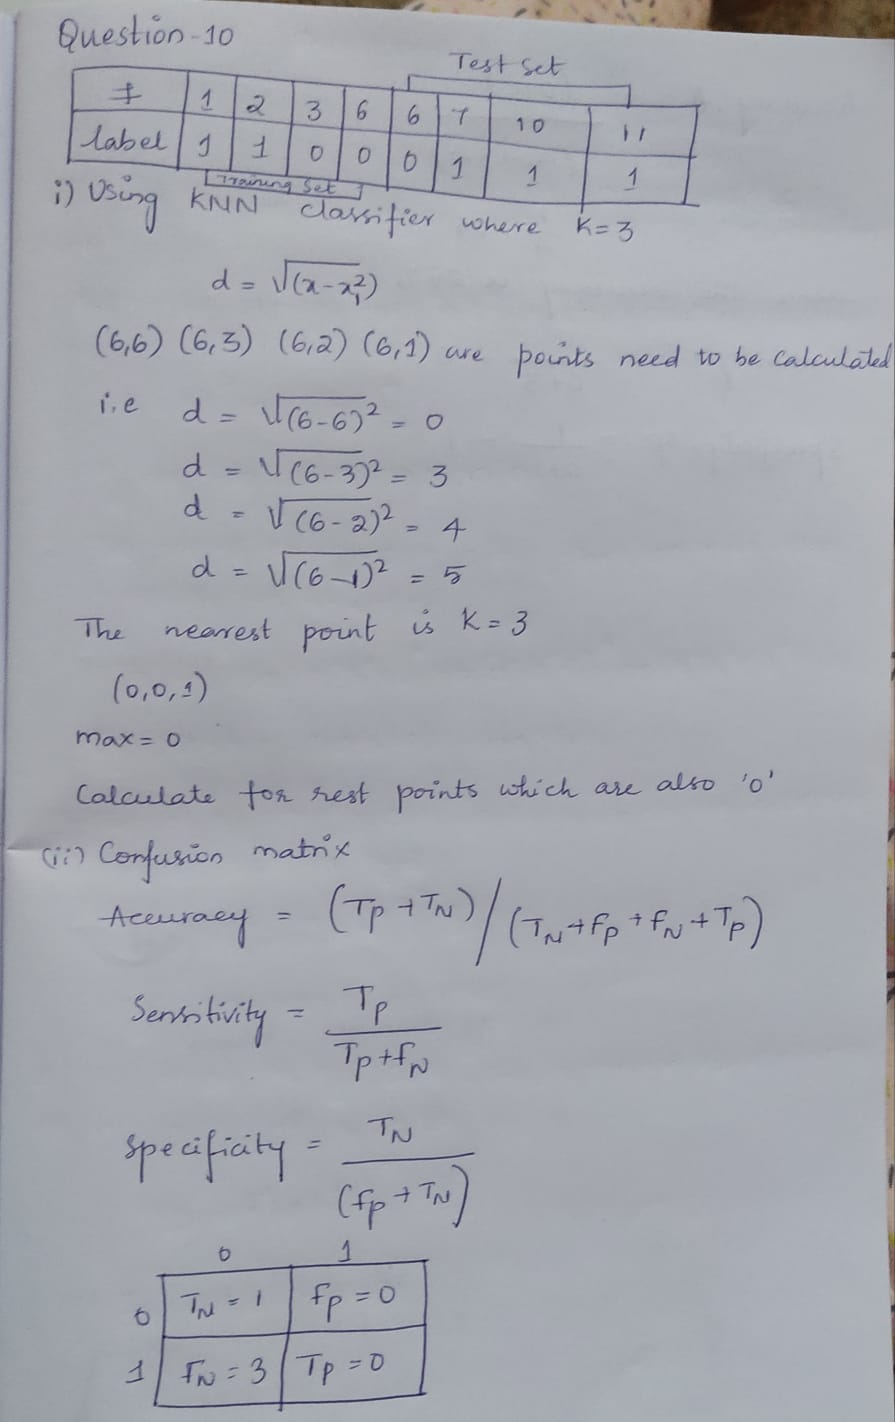 Question-10
Test Set
f 1 2 3 6 6 7 10 11
label 1 1 0 0 0 1 1 1
Training Set
i) Using KNN classifier where K=3
d = √(x-x₁²)
(6,6) (6,3) (6,2) (6,1) are points need to be calculated
i.e d = √(6-6)² = 0
d = √(6-3)² = 3
d = √(6-2)² = 4
d = √(6-1)² = 5
The nearest point is K=3
(0,0,1)
max=0
Calculate for rest points which are also '0'
(ii) Confusion matrix
Accuracy = (TP+TN)/(TN+fP+fN+TP)
Sensitivity = TP
TP+fN
Specificity = TN
(fP+TN)
0 1
0 TN=1 fP=0
1 FN=3 TP=0